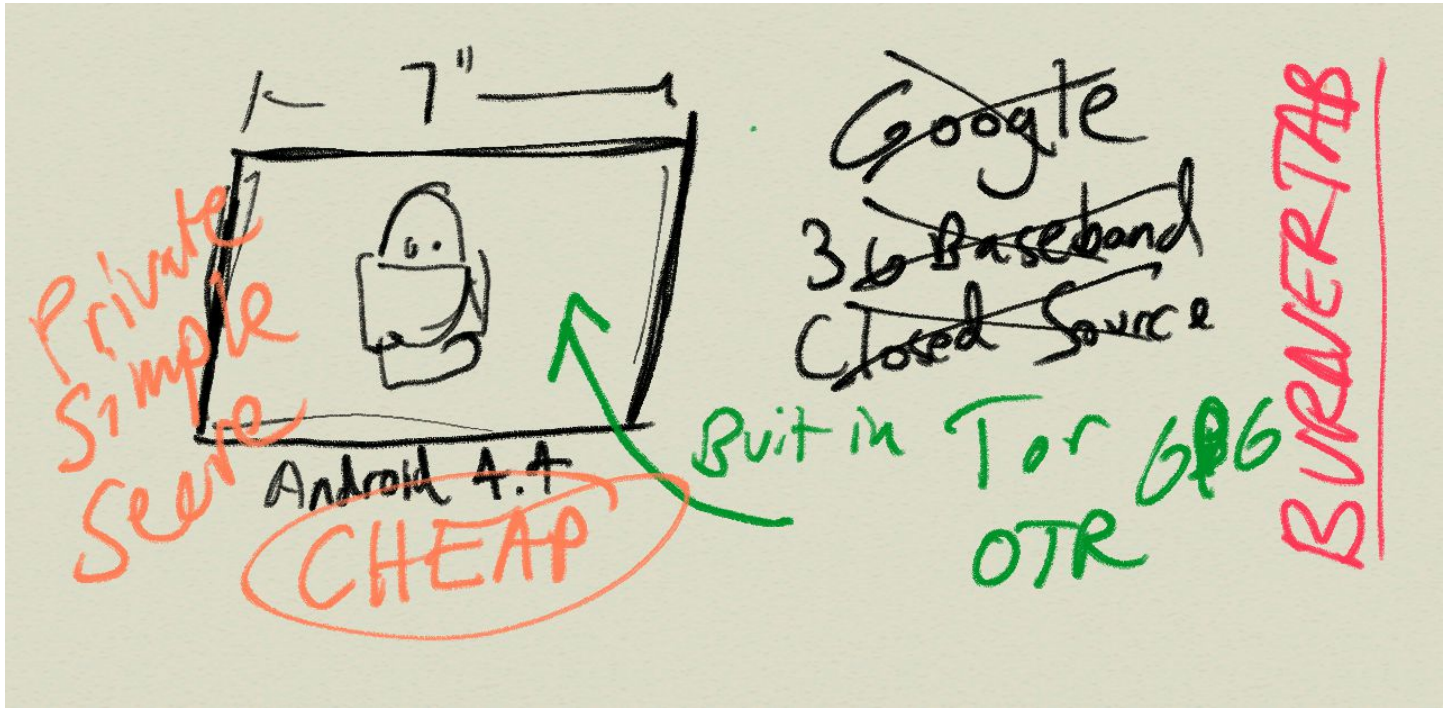 7"
Private
Simple
Secure
Android 4.4
CHEAP
Google
3G Baseband
Closed Source
Buit in Tor GPG
OTR
BURNERTAB